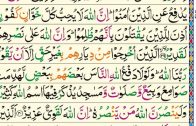 يُدَٰفِعُ عَنِ ٱلَّذِينَ ءَامَنُوٓا۟ إِنَّ ٱللَّهَ لَا يُحِبُّ كُلَّ خَوَّانٍ
يُقَٰتَلُونَ بِأَنَّهُمْ ظُلِمُوا۟ وَإِنَّ ٱللَّهَ عَلَىٰ نَصْرِهِمْ
لَقَدِيرٌ ٱلَّذِينَ أُخْرِجُوا۟ مِن دِيَٰرِهِم بِغَيْرِ حَقٍّ إِلَّآ أَن
رَبُّنَا ٱللَّهُ وَلَوْلَا دَفْعُ ٱللَّهِ ٱلنَّاسَ بَعْضَهُم بِبَعْضٍ لَّهُدِّمَتْ
صَوَٰمِعُ وَبِيَعٌ وَصَلَوَٰتٌ وَمَسَٰجِدُ يُذْكَرُ فِيهَا ٱسْمُ ٱللَّهِ
وَلَيَنصُرَنَّ ٱللَّهُ مَن يَنصُرُهُۥٓ إِنَّ ٱللَّهَ لَقَوِىٌّ عَزِيزٌ